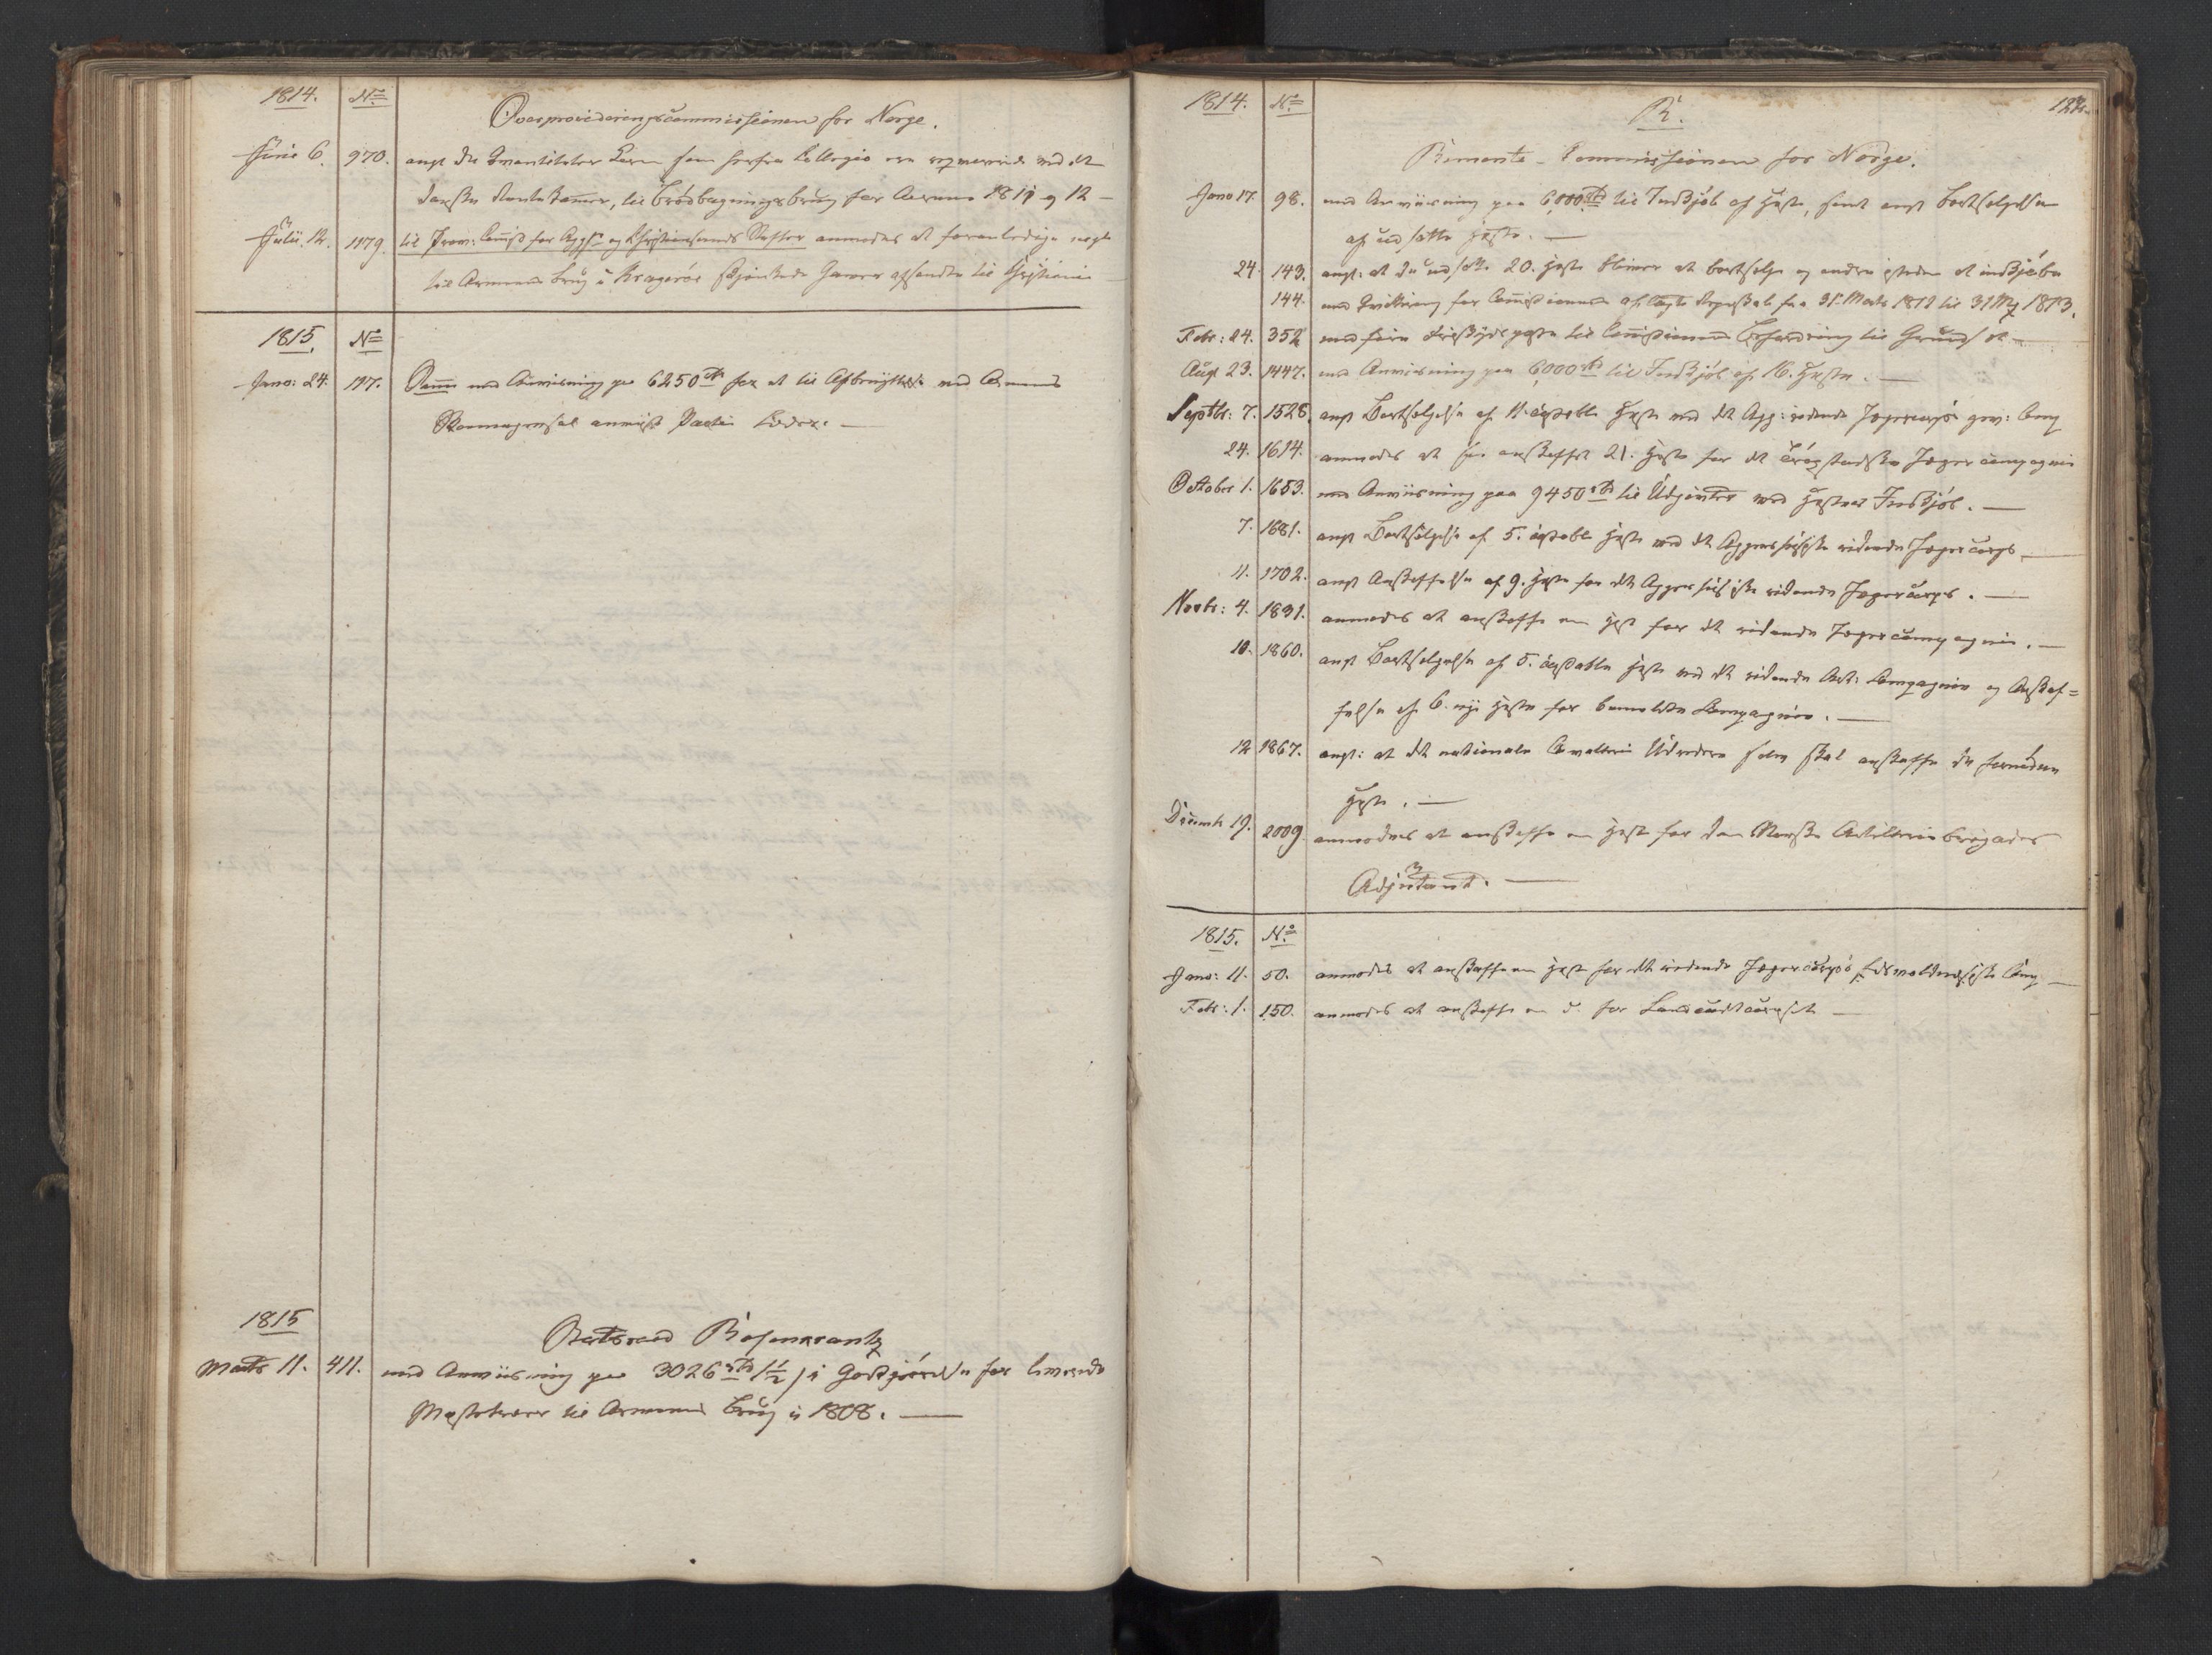 1814. No
Overprovideringscommissionen for Norge.
Junii 6. 970. angt de Quantiteter Korn som herfra Collegio ere reqvirerede ved det
danske Rentekamer, til Brødbagningsbrug for Aarene 1811 og 12 —
Julii. 12. 1179. til Prov: Comiss for Aggs og Christiansands Stifter anmodes at foranledige nogle
til Armeens Brug i Kragerøe skjænkede Gaver afsendte til Christiania
1815. No
Janv: 24. 117. Samme med Anviisning paa 6250 rd for at til
anviist Partie Læder. —
1815
Statsraad Rosenkrantz
Marts 11. 411. med Anviisning paa 3026 rd 1½ s i Godtgjørelse for leverede
Mastetræer til Armeens Brug i 1808. —
1814. No R. 122.
Remonte-Commissionen for Norge.
Janv 17. 98. med Anviisning paa 6,000 rd til Indkjøb af Heste, samt angt Bortsælgelsen
af udsatte Heste. —
24. 143. angt: at de udsatte 20. Heste bliver at bortsælge og andre isteden at indkjøbe
144. med Qvittering for Comissionens aflagte Regnskab fra 31 Marts 1812 til 31 Mz 1813.
Febr: 24. 352 med fiire til Comissionens Besørgelse til —
Augt 23. 1447. med Anviisning paa 6,000 rd til Indkjøb af 16. Heste. —
Septbr: 7. 1528. angt Bortsælgelse af 11 Heste ved det Agg: ridende Jægercorps
24. 1614. anmodes at faae anskaffet 21. Heste for det Jægercompagnie
October 1. 1653. med Anviisning paa 9450 rd til Udgivter ved Hestes Indkjøb. —
7. 1681. angt Bortsælgelse af 5. Heste ved det Aggershusiske ridende Jægercorps —
11. 1702. angt Anskaffelse af 9. Heste for det Aggershusiske ridende Jægercorps. —
Novbr: 4. 1831. anmodes at anskaffe en Hest for det ridende Jægercompagnie. —
10. 1860. angt Bortsælgelse af 5. Heste ved det ridende Art: Compagnie og Anskaf=
felse af 6. nye Heste for bemeldte Compagnie. —
12 1867. angt: at det nationale Cavallerie Udredere selv skal anskaffe de fornødne
Heste. —
Decembr 19. 2009. anmodes at anskaffe en Hest for den Norske Artilleriebrigades
Adjutant. —
1815. No
Janv: 11. 50. anmodes at anskaffe en Hest for det ridende Jægercorps Comp —
Febr: 1. 150. anmodes at anskaffe en do for —